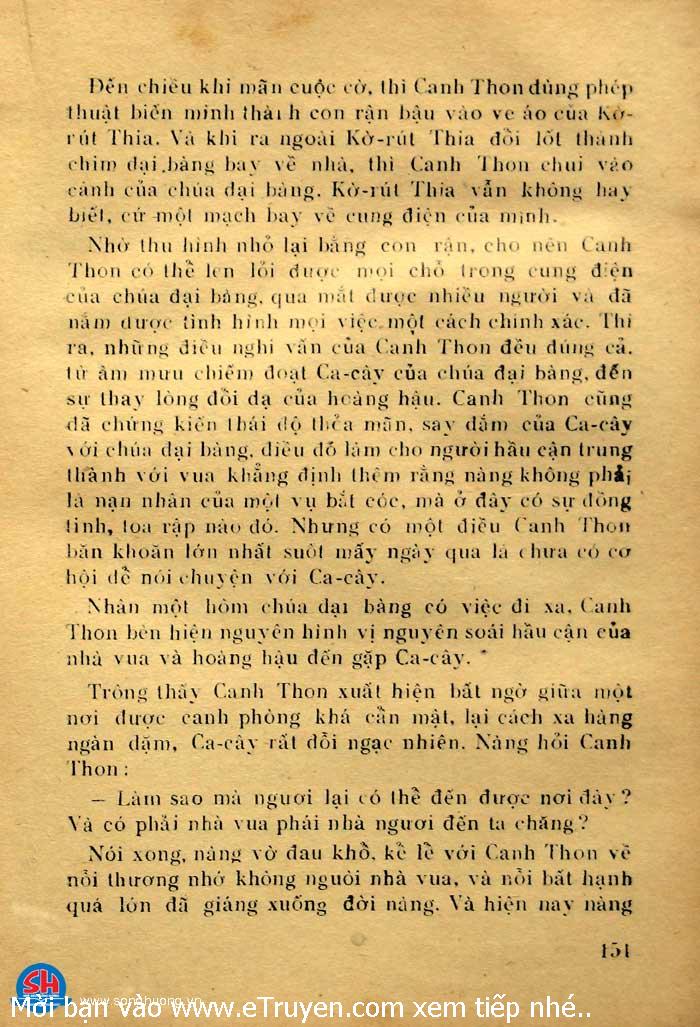 Đến chiều khi mãn cuộc cờ, thì Canh Thon dùng phép
thuật biến mình thành con rận bậu vào ve áo của Kờ-
rút Thia. Và khi ra ngoài Kờ-rút Thia đổi lốt thành
chim đại bàng bay về nhà, thì Canh Thon chui vào
cánh của chúa đại bàng. Kờ-rút Thia vẫn không hay
biết, cứ một mạch bay về cung điện của mình.
Nhờ thu hình nhỏ lại bằng con rận, cho nên Canh
Thon có thể len lỏi được mọi chỗ trong cung điện
của chúa đại bàng, qua mắt được nhiều người và đã
nắm được tình hình mọi việc một cách chính xác. Thì
ra, những điều nghi vấn của Canh Thon đều đúng cả,
từ âm mưu chiếm đoạt Ca-cây của chúa đại bàng, đến
sự thay lòng đổi dạ của hoàng hậu. Canh Thon cũng
đã chứng kiến thái độ thỏa mãn, say đắm của Ca-cây
với chúa đại bàng, điều đó làm cho người hầu cận trung
thành với vua khẳng định thêm rằng nàng không phải
là nạn nhân của một vụ bắt cóc, mà ở đây có sự đồng
tình, toa rập nào đó. Nhưng có một điều Canh Thon
băn khoăn lớn nhất suốt mấy ngày qua là chưa có cơ
hội để nói chuyện với Ca-cây.
Nhân một hôm chúa đại bàng có việc đi xa, Canh
Thon bèn hiện nguyên hình vị nguyên soái hầu cận của
nhà vua và hoàng hậu đến gặp Ca-cây.
Trông thấy Canh Thon xuất hiện bất ngờ giữa một
nơi được canh phòng khá cẩn mật, lại cách xa hàng
ngàn dặm, Ca-cây rất đỗi ngạc nhiên. Nàng hỏi Canh
Thon :
— Làm sao mà ngươi lại có thể đến được nơi đây ?
Và có phải nhà vua phái nhà ngươi đến ta chăng ?
Nói xong, nàng vờ đau khổ, kể lể với Canh Thon về
nỗi thương nhớ không nguôi nhà vua, và nỗi bất hạnh
quá lớn đã giáng xuống đời nàng. Và hiện nay nàng
151
SH
www.songhuong.vn
Mời bạn vào www.eTruyen.com xem tiếp nhé..